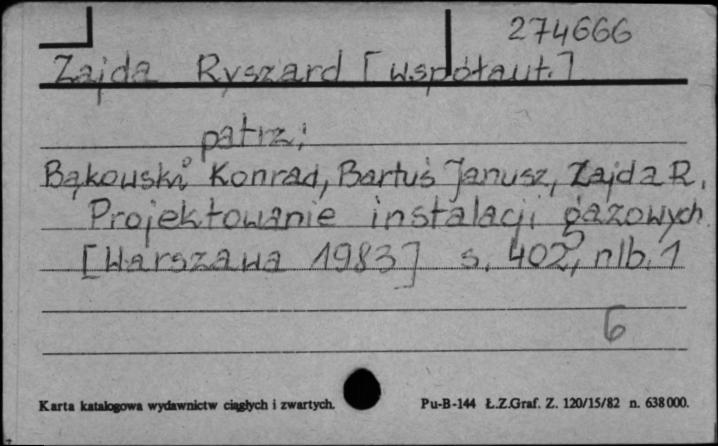 274666
Zajda Ryszard [współaut.]
patrz:
Bąkowski Konrad, Bartuś Janusz, Zajda R.
Projektowanie instalacji gazowych
[Warszawa 1983] s. 402, nlb. 1
6
Karta katalogowa wydawnictw ciągłych i zwartych.
Pu-B-144 Ł.Z.Graf. Z. 120/15/82 n. 638000.